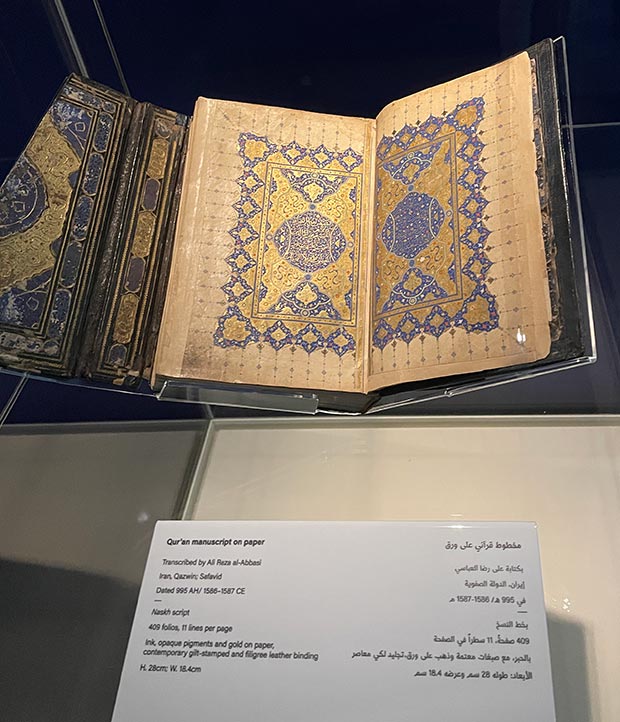 Qur'an manuscript on paper
Transcribed by Ali Reza al-Abbasi
Iran, Qazwin; Safavid
Dated 995 AH/ 1586–1587 CE
Naskh script
409 folios, 11 lines per page
Ink, opaque pigments and gold on paper,
contemporary gilt-stamped and filigree leather binding
H. 28cm; W. 18.4cm
مخطوط قرآني على ورق
بكتابة على رضا العباسي
إيران، الدولة الصفوية
في 995 هـ/ 1586-1587 م
بخط النسخ
409 صفحة، 11 سطراً في الصفحة
بالحبر، مع صبغات معتمة وذهب على ورق،تجليد لكي معاصر
الأبعاد: طوله 28 سم وعرضه 18.4 سم